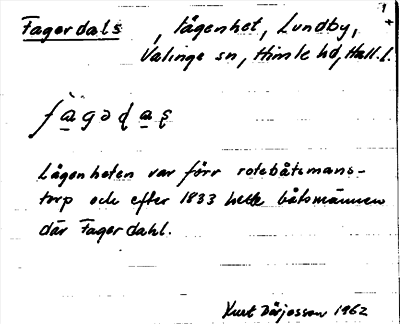 Fagerdals, lägenhet, Lundby,
Valinge sn, Himle hd, Hall. l.
Lägenheten var förr rotebåtsmans-
torp och efter 1833 hette båtsmännen
där Fagerdahl.
Kurt 1962